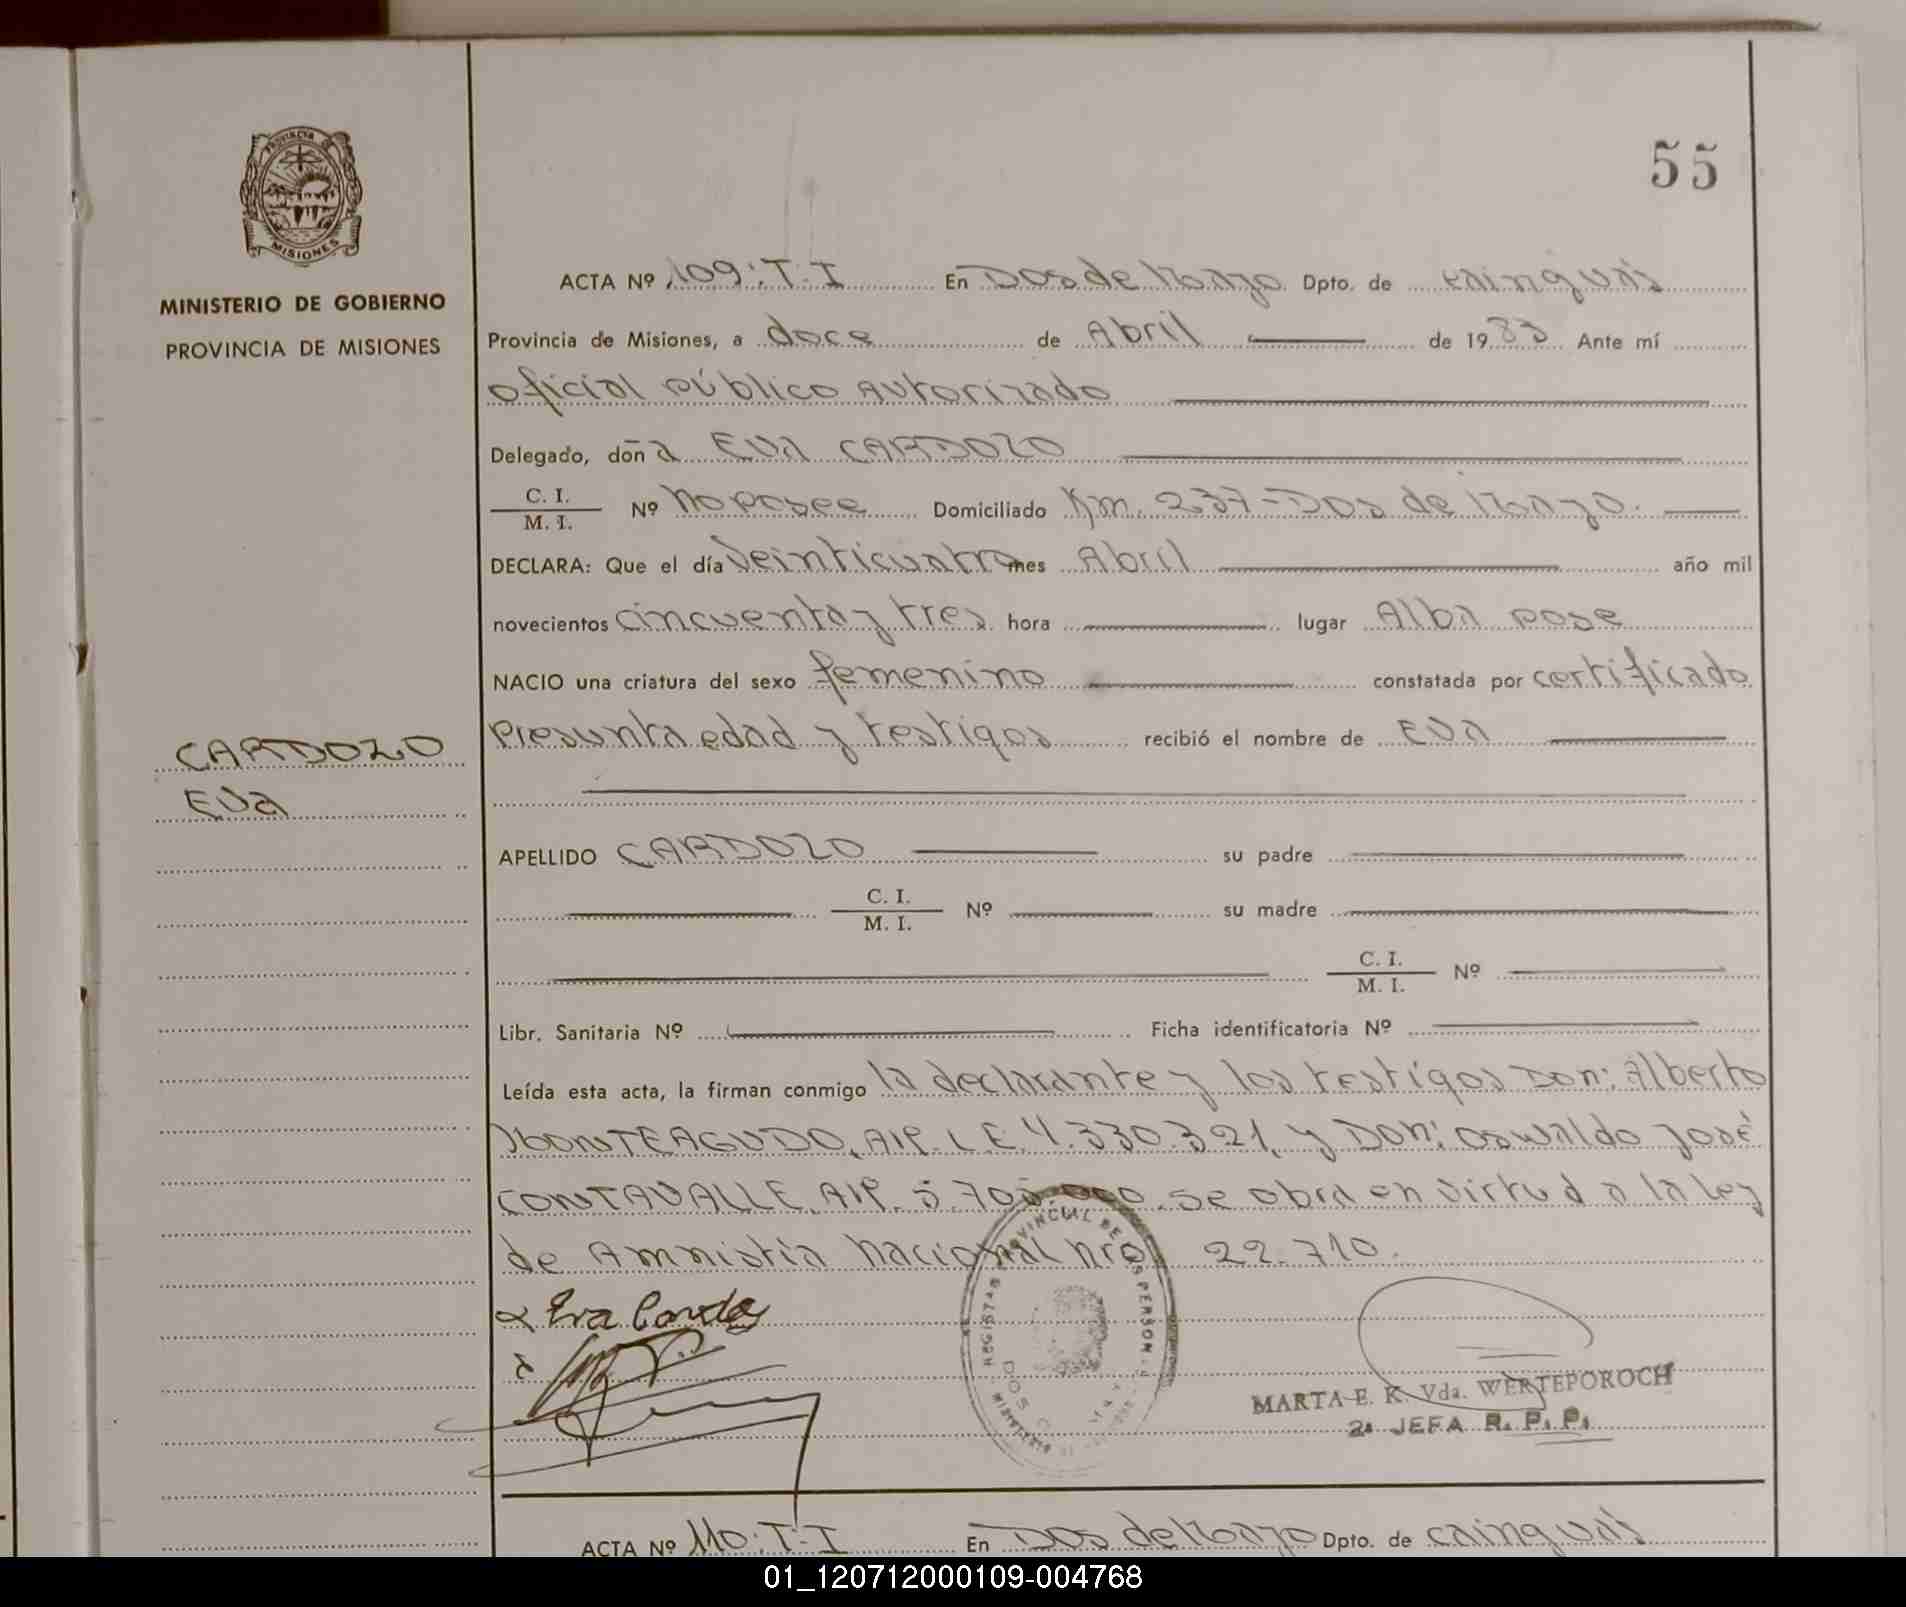 55
PROVINCIA DE
MISIONES
MINISTERIO DE GOBIERNO
PROVINCIA DE MISIONES
ACTA Nº 109: T: I En Dos de Mayo Dpto. de cainguás
Provincia de Misiones, a doce de Abril de 1983 Ante mí
oficial público autorizado
Delegado, doña EVA CARDOZO
C. I. / M. I. Nº no posee Domiciliado Km. 237 - Dos de Mayo.
DECLARA: Que el día veinticuatro mes Abril año mil
novecientos cincuenta y tres hora lugar Alba pose
NACIO una criatura del sexo femenino constatada por certificado
presunta edad y testigos recibió el nombre de EVA
CARDOZO
EVa
APELLIDO CARDOZO su padre
C. I. / M. I. Nº su madre
C. I. / M. I. Nº
Libr. Sanitaria Nº Ficha identificatoria Nº
Leída esta acta, la firman conmigo la declarante y los testigos Don: Alberto
MONTEAGUDO, AIP. L.E. 4.330.321, y DON: oswaldo José
CONTAVALLE, AIP. 5.705.000. se obra en virtud a la Ley
de Amnistia nacional nro 22.710.
Eva Cardozo
REGISTRO PROVINCIAL DE LAS PERSONAS
DOS DE MAYO
MARTA E. K. Vda. WERTEPOROCH
2a JEFA R. P. P.
ACTA Nº 110: T: I En Dos de Mayo Dpto. de cainguás
01_120712000109-004768